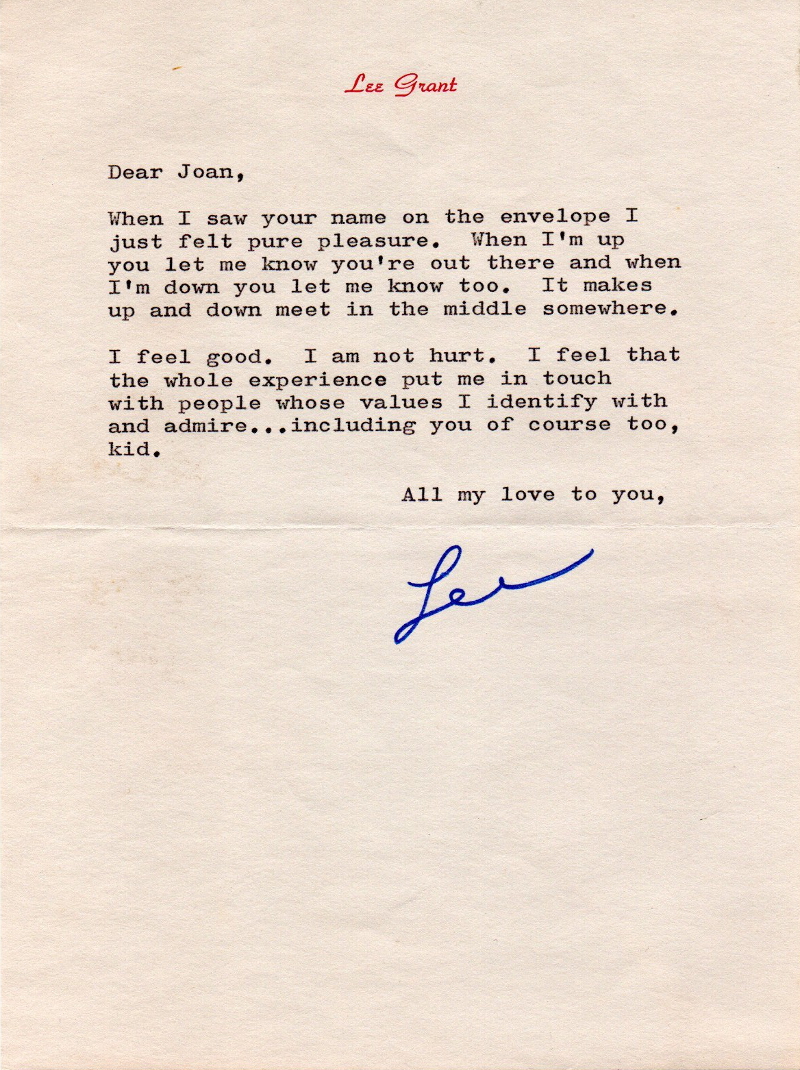 Lee Grant
Dear Joan,
When I saw your name on the envelope I
just felt pure pleasure.  When I'm up
you let me know you're out there and when
I'm down you let me know too.  It makes
up and down meet in the middle somewhere.
I feel good.  I am not hurt.  I feel that
the whole experience put me in touch
with people whose values I identify with
and admire...including you of course too,
kid.
All my love to you,
Lee